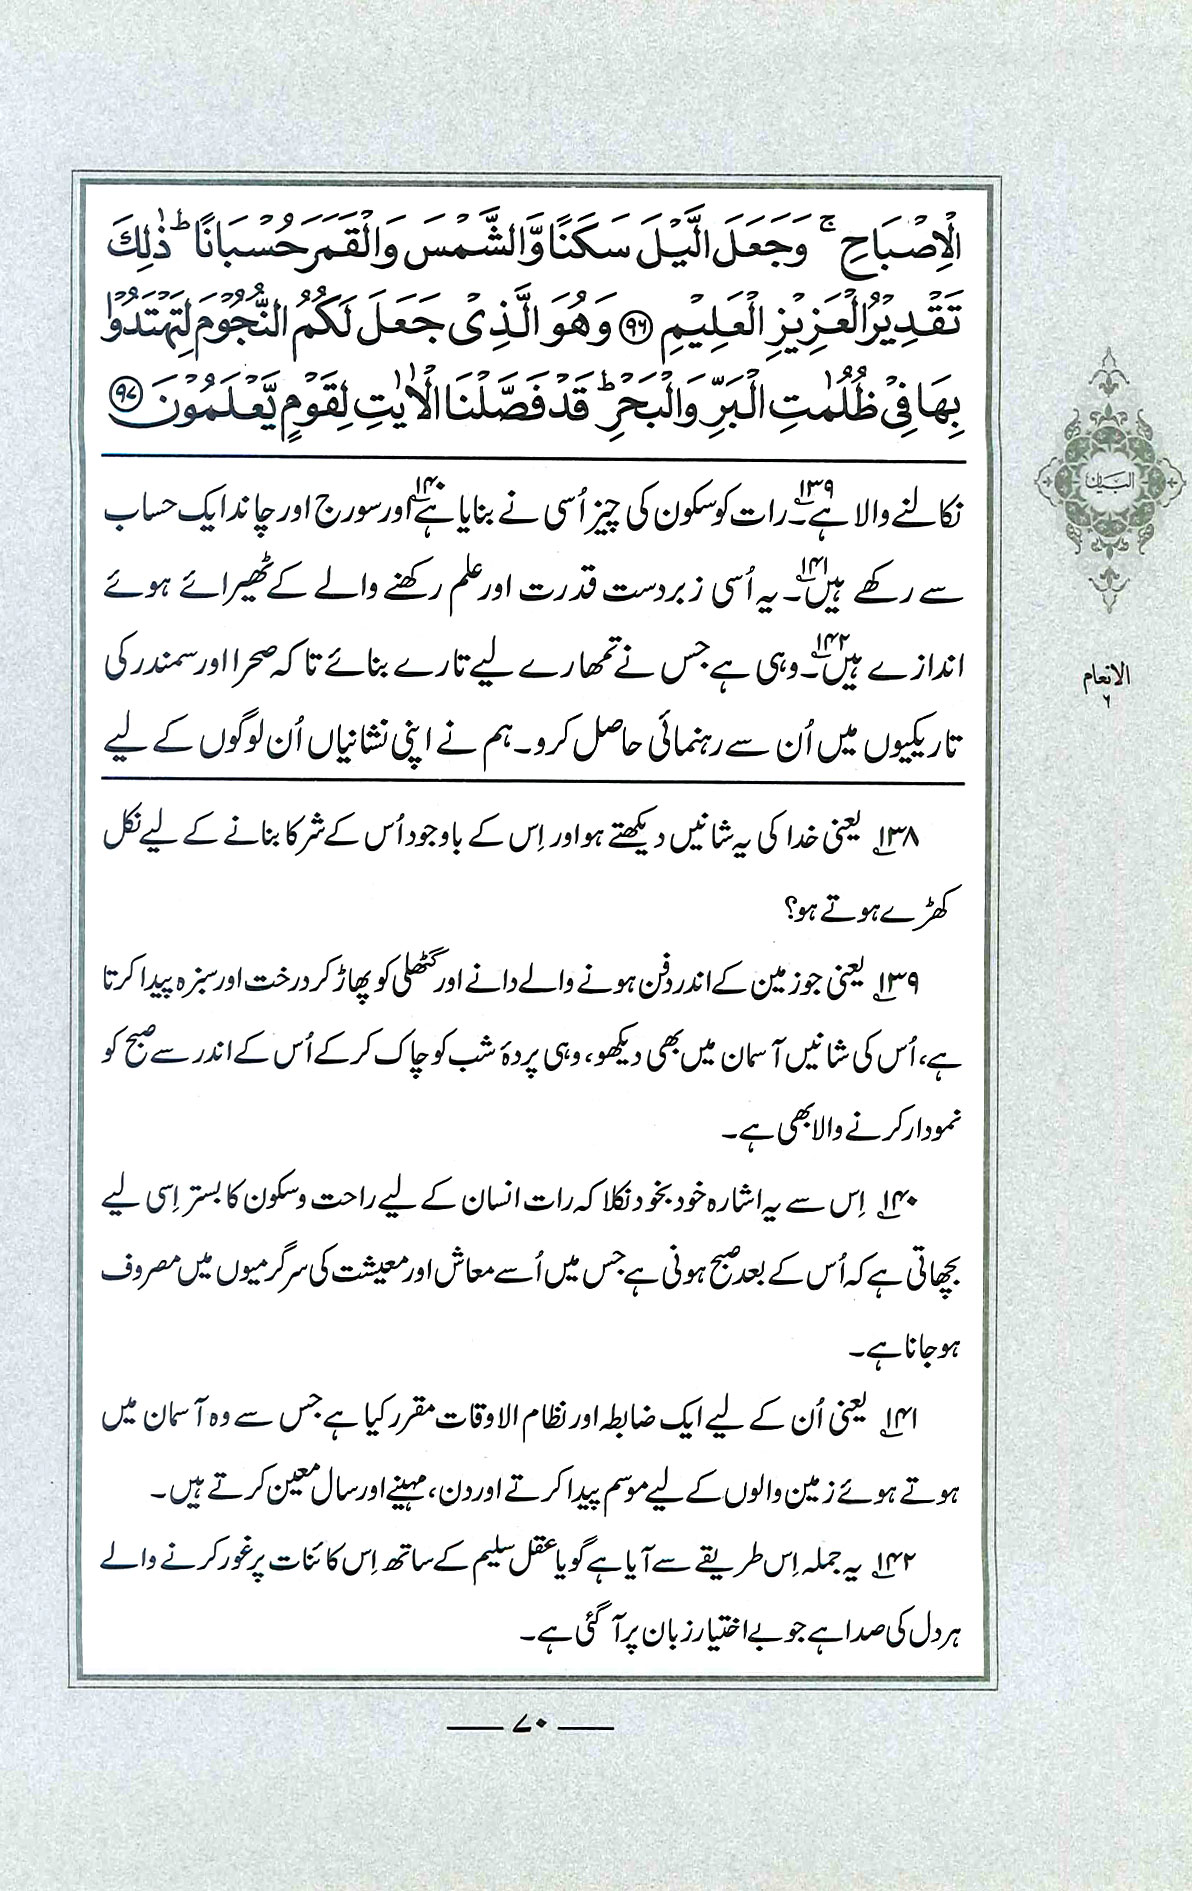 الْاِصْبَاحِ ۚ وَجَعَلَ الَّيْلَ سَكَنًا وَّالشَّمْسَ وَالْقَمَرَ حُسْبَانًا ؕ ذٰلِكَ
تَقْدِيْرُ الْعَزِيْزِ الْعَلِيْمِ ﴿۹۶﴾ وَهُوَ الَّذِیْ جَعَلَ لَكُمُ النُّجُوْمَ لِتَهْتَدُوْا
بِهَا فِیْ ظُلُمٰتِ الْبَرِّ وَالْبَحْرِ ؕ قَدْ فَصَّلْنَا الْاٰيٰتِ لِقَوْمٍ يَّعْلَمُوْنَ ﴿۹۷﴾
نکالنے والا ہے۔۱۳۹ رات کو سکون کی چیز اُسی نے بنایا ہے۱۴۰ اور سورج اور چاند ایک حساب
سے رکھے ہیں۔۱۴۱ یہ اُسی زبردست قدرت اور علم رکھنے والے کے ٹھیرائے ہوئے
اندازے ہیں۔۱۴۲ وہی ہے جس نے تمھارے لیے تارے بنائے تاکہ صحرا اور سمندر کی
تاریکیوں میں اُن سے رہنمائی حاصل کرو۔ ہم نے اپنی نشانیاں اُن لوگوں کے لیے
۱۳۸ یعنی خدا کی یہ شانیں دیکھتے ہو اور اِس کے باوجود اُس کے شرکا بنانے کے لیے نکل
کھڑے ہوتے ہو؟
۱۳۹ یعنی جو زمین کے اندر دفن ہونے والے دانے اور گٹھلی کو پھاڑ کر درخت اور سبزہ پیدا کرتا
ہے، اُس کی شانیں آسمان میں بھی دیکھو، وہی پردۂ شب کو چاک کر کے اُس کے اندر سے صبح کو
نمودار کرنے والا بھی ہے۔
۱۴۰ اِس سے یہ اشارہ خود بخود نکلا کہ رات انسان کے لیے راحت و سکون کا بستر اِسی لیے
بچھاتی ہے کہ اُس کے بعد صبح ہونی ہے جس میں اُسے معاش اور معیشت کی سرگرمیوں میں مصروف
ہو جانا ہے۔
۱۴۱ یعنی اُن کے لیے ایک ضابطہ اور نظام الاوقات مقرر کیا ہے جس سے وہ آسمان میں
ہوتے ہوئے زمین والوں کے لیے موسم پیدا کرتے اور دن، مہینے اور سال معین کرتے ہیں۔
۱۴۲ یہ جملہ اِس طریقے سے آیا ہے گویا عقل سلیم کے ساتھ اِس کائنات پر غور کرنے والے
ہر دل کی صدا ہے جو بے اختیار زبان پر آ گئی ہے۔
۷۰
البیان
الانعام
۶